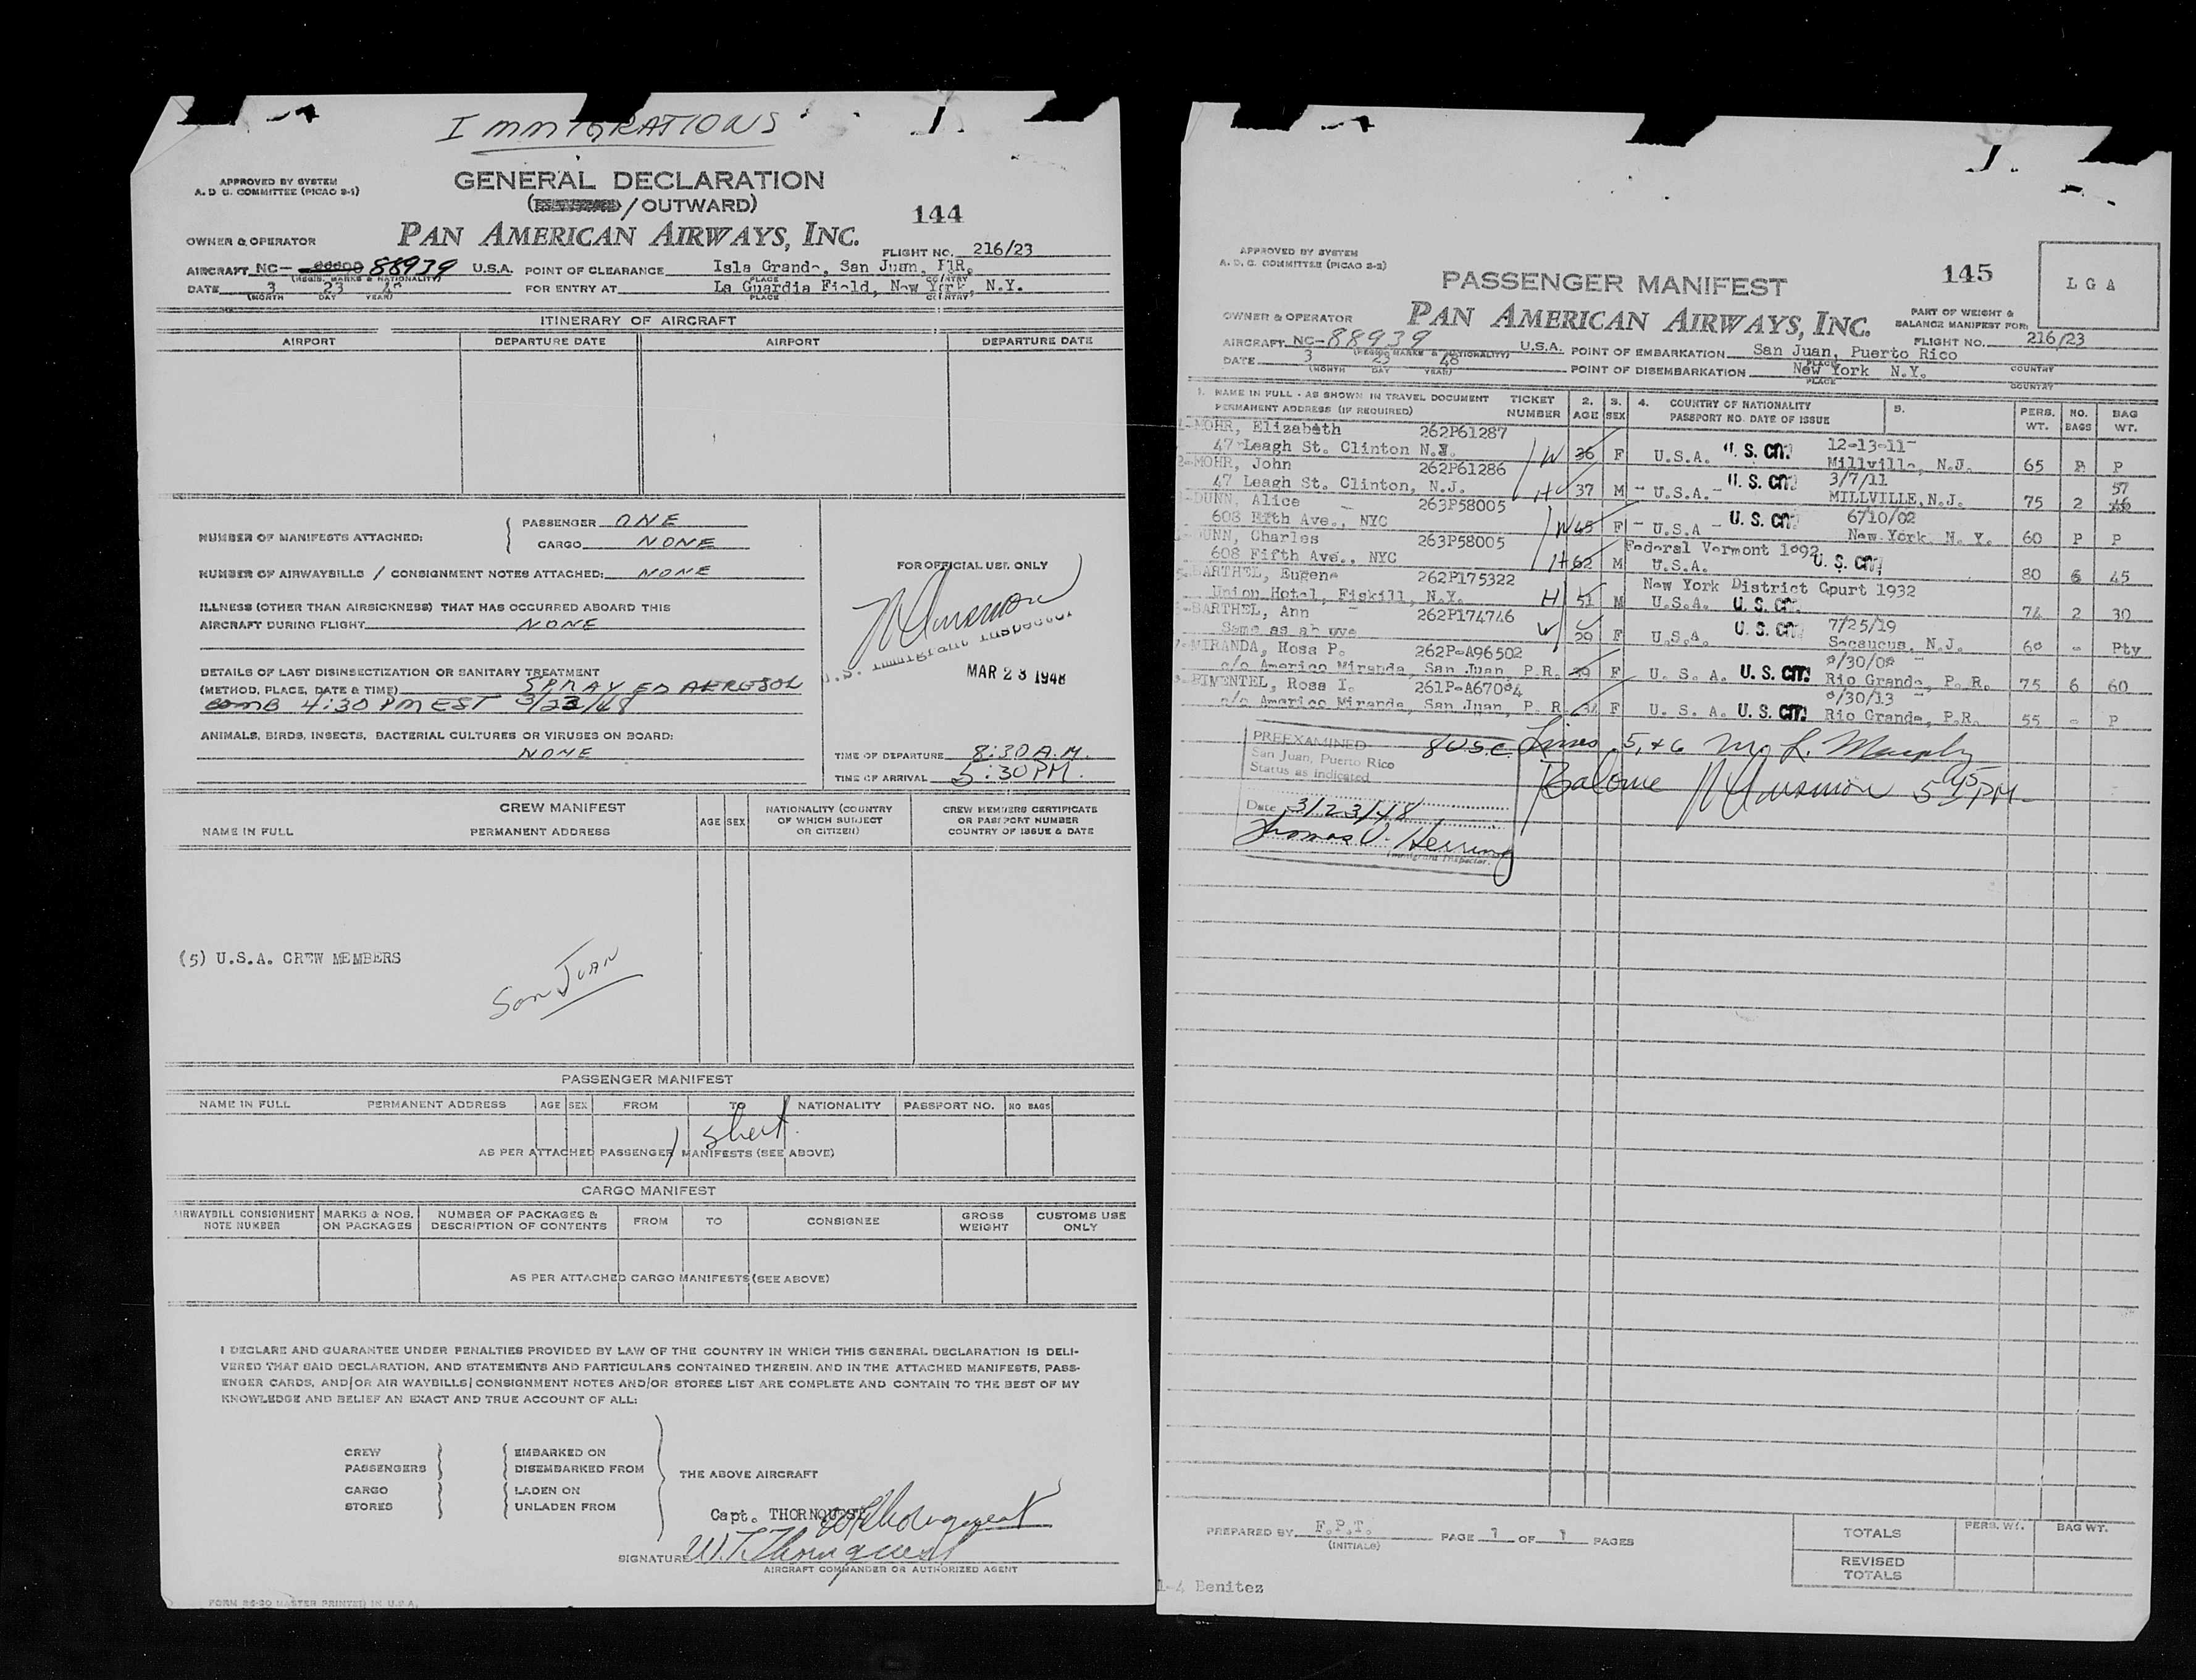 IMMIGRATIONS
APPROVED BY SYSTEM
A. D. C. COMMITTEE (PICAO 2-1)
GENERAL DECLARATION
( / OUTWARD)
144
PAN AMERICAN AIRWAYS, INC.
OWNER & OPERATOR
FLIGHT NO. 216/23
AIRCRAFT NC- 88939 U.S.A. POINT OF CLEARANCE Isla Grande, San Juan, P.R.
(REGIS. MARKS & NATIONALITY) PLACE COUNTRY
DATE 3 23 48 FOR ENTRY AT La Guardia Field, New York, N.Y.
(MONTH DAY YEAR) PLACE COUNTRY
ITINERARY OF AIRCRAFT
AIRPORT DEPARTURE DATE AIRPORT DEPARTURE DATE
NUMBER OF MANIFESTS ATTACHED: PASSENGER ONE
CARGO NONE
NUMBER OF AIRWAYBILLS / CONSIGNMENT NOTES ATTACHED: NONE
FOR OFFICIAL USE ONLY
ILLNESS (OTHER THAN AIRSICKNESS) THAT HAS OCCURRED ABOARD THIS
AIRCRAFT DURING FLIGHT NONE
U.S. Immigrant Inspector
MAR 23 1948
DETAILS OF LAST DISINSECTIZATION OR SANITARY TREATMENT
(METHOD, PLACE, DATE & TIME) SPRAYED AEROSOL
BOMB 4:30 PM EST 3/23/48
ANIMALS, BIRDS, INSECTS, BACTERIAL CULTURES OR VIRUSES ON BOARD:
NONE
TIME OF DEPARTURE 8:30 A.M.
TIME OF ARRIVAL 5:30 PM.
CREW MANIFEST
NAME IN FULL PERMANENT ADDRESS AGE SEX NATIONALITY (COUNTRY OF WHICH SUBJECT OR CITIZEN) CREW MEMBERS CERTIFICATE OR PASSPORT NUMBER COUNTRY OF ISSUE & DATE
(5) U.S.A. CREW MEMBERS
San Juan
PASSENGER MANIFEST
NAME IN FULL PERMANENT ADDRESS AGE SEX FROM TO NATIONALITY PASSPORT NO. NO BAGS
1 sheet.
AS PER ATTACHED PASSENGER MANIFESTS (SEE ABOVE)
CARGO MANIFEST
AIRWAYBILL CONSIGNMENT NOTE NUMBER MARKS & NOS. ON PACKAGES NUMBER OF PACKAGES & DESCRIPTION OF CONTENTS FROM TO CONSIGNEE GROSS WEIGHT CUSTOMS USE ONLY
AS PER ATTACHED CARGO MANIFESTS (SEE ABOVE)
I DECLARE AND GUARANTEE UNDER PENALTIES PROVIDED BY LAW OF THE COUNTRY IN WHICH THIS GENERAL DECLARATION IS DELI-
VERED THAT SAID DECLARATION, AND STATEMENTS AND PARTICULARS CONTAINED THEREIN, AND IN THE ATTACHED MANIFESTS, PASS-
ENGER CARDS, AND/OR AIR WAYBILLS/ CONSIGNMENT NOTES AND/OR STORES LIST ARE COMPLETE AND CONTAIN TO THE BEST OF MY
KNOWLEDGE AND BELIEF AN EXACT AND TRUE ACCOUNT OF ALL:
CREW EMBARKED ON
PASSENGERS DISEMBARKED FROM
THE ABOVE AIRCRAFT
CARGO LADEN ON
STORES UNLADEN FROM
Capt. THORNQUEST
SIGNATURE W.T. Thornquest
AIRCRAFT COMMANDER OR AUTHORIZED AGENT
FORM 26-20 MASTER PRINTED IN U.S.A.
APPROVED BY SYSTEM
A. D. C. COMMITTEE (PICAO 2-2)
PASSENGER MANIFEST
145
LGA
OWNER & OPERATOR
PAN AMERICAN AIRWAYS, INC.
PART OF WEIGHT &
BALANCE MANIFEST FOR:
FLIGHT NO. 216/23
AIRCRAFT NC-88939 U.S.A. POINT OF EMBARKATION San Juan, Puerto Rico
(REGIS. MARKS & NATIONALITY) PLACE COUNTRY
DATE 3 23 48 POINT OF DISEMBARKATION New York N.Y.
(MONTH DAY YEAR) PLACE COUNTRY
1. NAME IN FULL - AS SHOWN IN TRAVEL DOCUMENT PERMANENT ADDRESS (IF REQUIRED) TICKET NUMBER 2. AGE 3. SEX 4. COUNTRY OF NATIONALITY PASSPORT NO. DATE OF ISSUE 5. PERS. WT. NO. BAGS BAG WT.
1-MOHR, Elizabeth 262P61287 12-13-11
47 Leagh St. Clinton N.J. W 36 F U.S.A. U. S. CIT. Millville, N.J. 65 P P
2-MOHR, John 262P61286 3/7/11 57
47 Leagh St. Clinton, N.J. H 37 M - U.S.A.- U. S. CIT. MILLVILLE, N.J. 75 2 46
-DUNN, Alice 263P58005 6/10/02
608 Fifth Ave., NYC W 45 F - U.S.A - U. S. CIT. New York, N. Y. 60 P P
DUNN, Charles 263P58005 Federal Vermont 1892
608 Fifth Ave., NYC H 62 M U.S.A. U. S. CIT. 80 6 45
5-BARTHEL, Eugene 262P175322 New York District Court 1932
Union Hotel, Fiskill, N.Y. H 51 M U.S.A. U. S. CIT. 74 2 30
-BARTHEL, Ann 262P174746 7/25/19
Same as above W 29 F U.S.A. U. S. CIT. Secaucus, N.J. 60 - Pty
7-MIRANDA, Rosa P. 262P-A96502 8/30/08
c/o Americo Miranda, San Juan, P.R. 39 F U. S. A. U. S. CIT. Rio Grande, P.R. 75 6 60
PIMENTEL, Rosa I. 261P-A67084 8/30/13
c/o Americo Miranda, San Juan, P. R. 34 F U. S. A. U. S. CIT. Rio Grande, P.R. 55 - P
8 USC Lines 5, + 6
PREEXAMINED
San Juan, Puerto Rico
Status as indicated
Balance
Date 3/23/48
Thomas V. Herring
Immigrant Inspector.
PREPARED BY F.P.T. PAGE 1 OF 1 PAGES
(INITIALS)
TOTALS PERS. WT. BAG WT.
REVISED TOTALS
1-4 Benitez